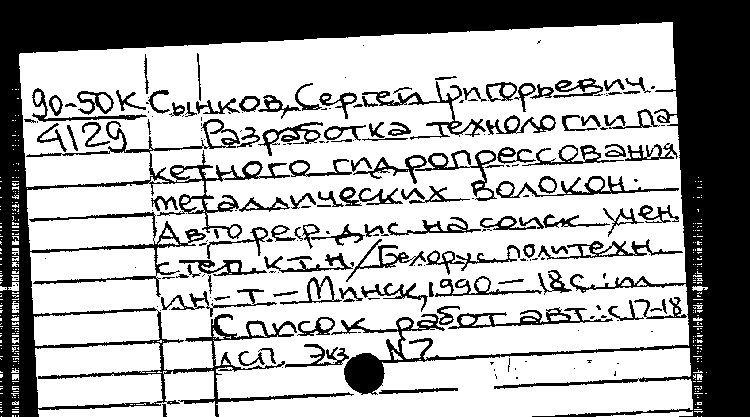 90-50К Сынков, Сергей Григорьевич.
4129 Разработка технологии па-
кетного гидропрессования
металлических волокон:
Автореф. дис. на соиск учен.
степ. к.т.н./Белорус. политехн.
ин-т – Минск, 1990 – 18 с.: ил
Список работ авт.: с 17-18
ДСП. Экз. N 7